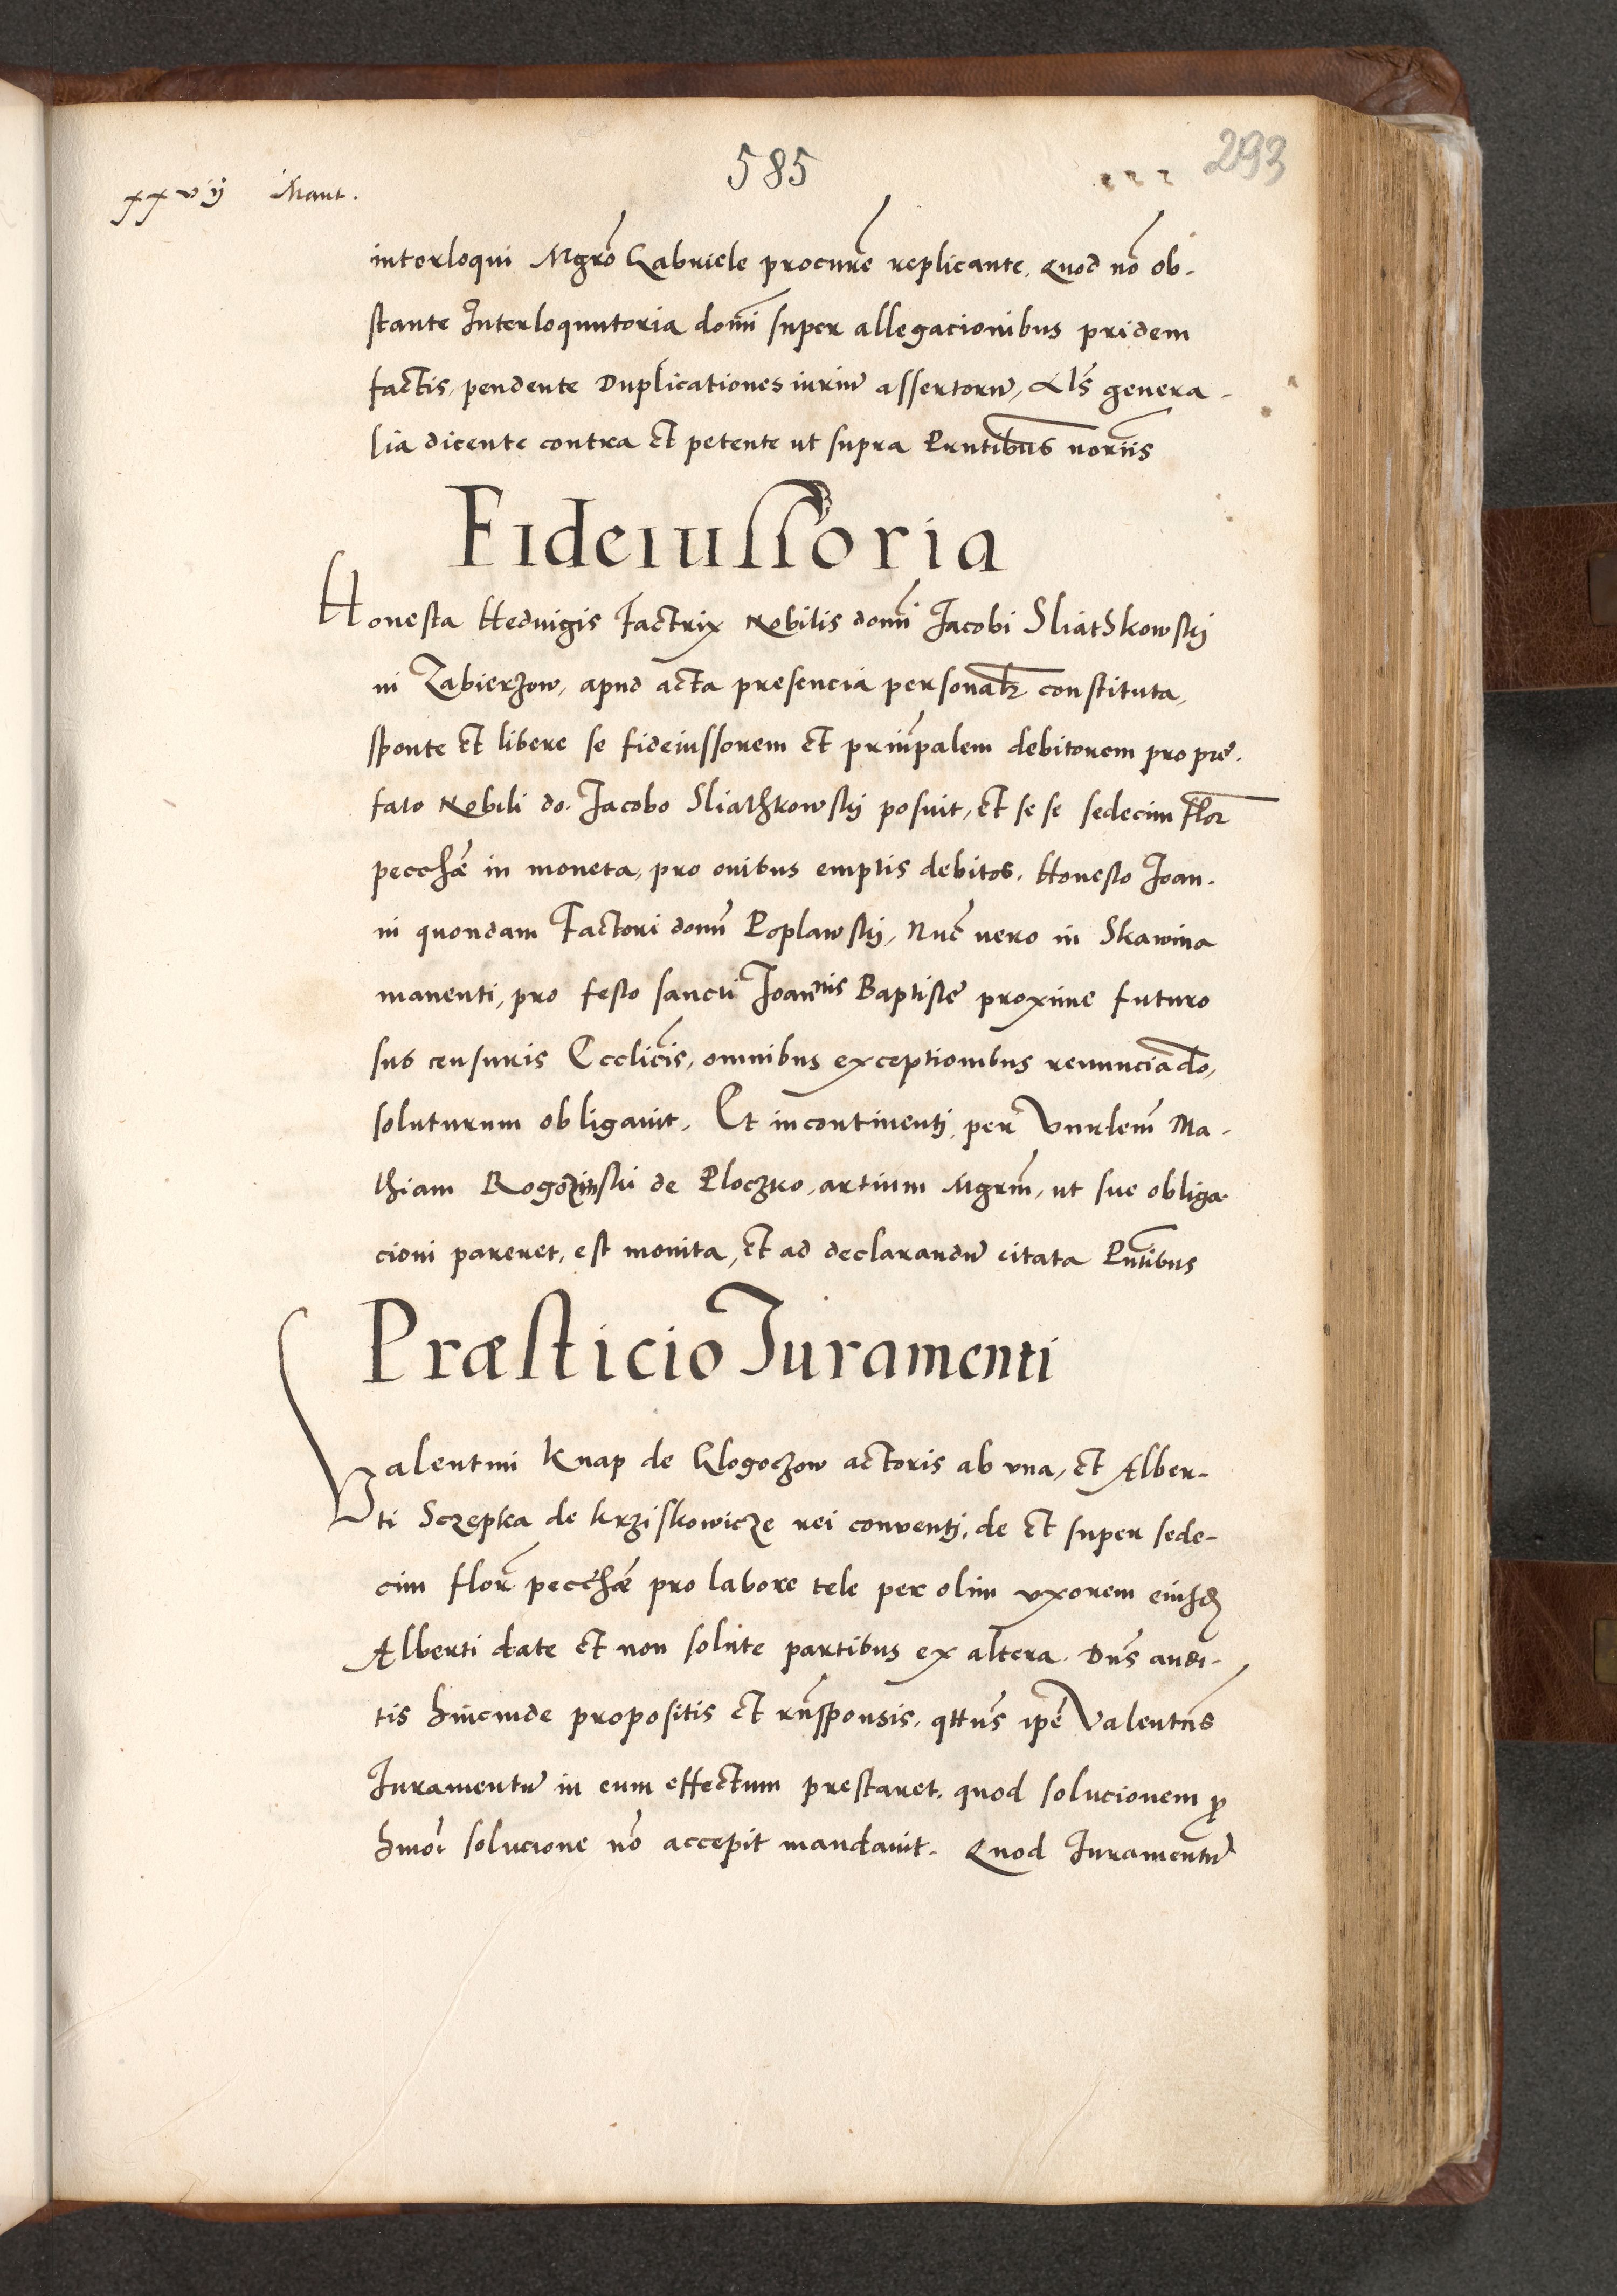 585
293
xxvij Mart.
interloqui Mgrō Gabriele procurē replicante. Quod nō ob-
stante Interloquutoria domī super allegacionibus pridem
factis, pendente Duplicationes iuriū assertorū, Als genera-
lia dicente contra et petente ut supra Prntibus noriis
Fideiussoria
Honesta Hedvigis Factrix Nobilis domī Jacobi Sliathkowskij
in Zabierzow, apud acta presencia personalr constituta,
sponte et libere se fideiussorem et prinpalem debitorem pro pre-
fato Nobili do. Jacobo Sliathkowskij posuit, et se se sedecim flor
pecchæ in moneta, pro ovibus emptis debitos, Honesto Joan-
ni quondam Factori domī Poplawskij, Nuc vero in Skawina
manenti, pro festo sancti Joannis Baptiste proxime futuro
sub censuris Ecclicis, omnibus exceptionibus renunciādo,
soluturum obligavit. Et incontinenti per Vnrlem Ma-
thiam Rogozinski de Ploczko, artium Mgrm, ut sue obliga-
cioni pareret, est monita, et ad declarandū citata Pntibus
Præsticio Juramenti
Valentini Knap de Glogoczow actoris ab vna, et Alber-
ti Sczepka de Krziskowicze rei conventj, de et super sede-
cim flor pecchæ pro labore tele per olim vxorem eiusdem
Alberti date et non solute partibus ex altera. Dns audi-
tis hincinde propositis et rnsponsis, qttns ipe Valentns
Iuramentū in eum effectum prestaret, quod solucionem p
hmoi solucione nō accepit mandavit. Quod Iuramentū